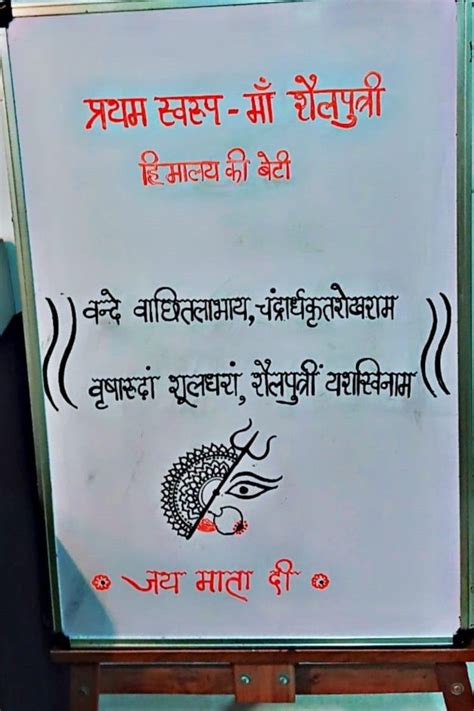 प्रथम स्वरूप - माँ शैलपुत्री
हिमालय की बेटी
वन्दे वाछितलाभाय, चंद्रार्धकृतशेखराम
वृषारूढां शूलधरां, शैलपुत्रीं यशस्विनाम
जय माता दी